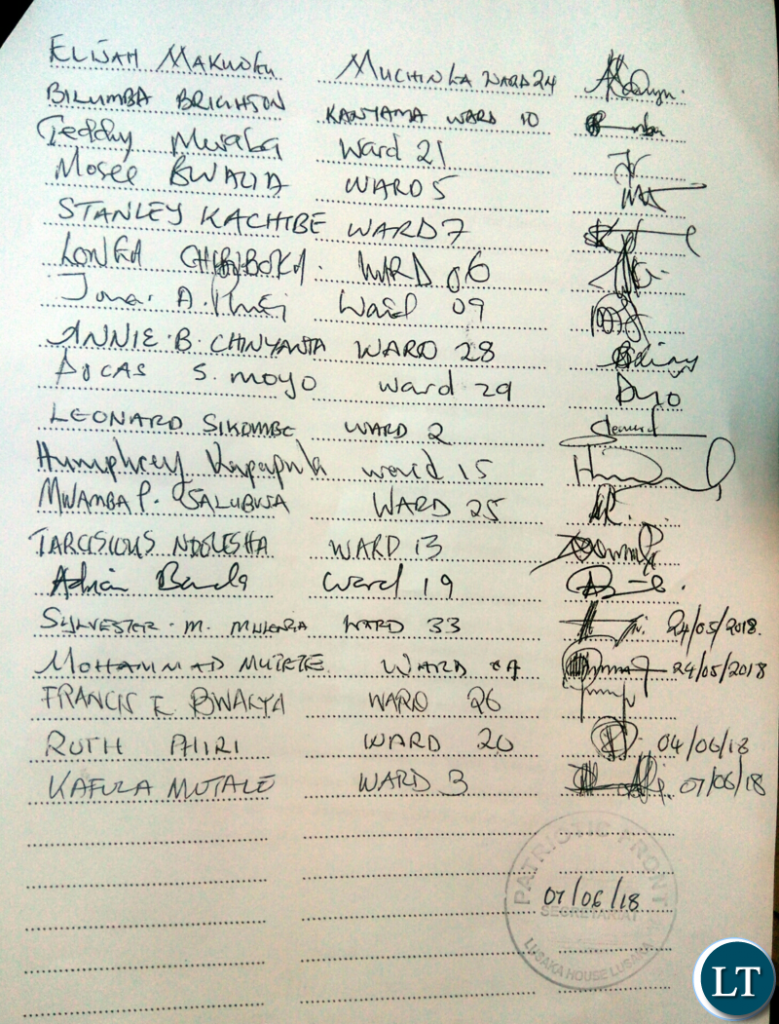 ELIJAH MAKUNGU MUCHINKA WARD 24
BILUMBA BRIGHTON KANYAMA WARD 10
Teddy Musaba Ward 21
MOSES BWALYA WARD 5
STANLEY KACHIBE WARD 7
WARD 06
A. Ward 09
ANNIE B. CHINYANTA WARD 28
DOCAS S. MOYO Ward 29
LEONARD SIKOMBE WARD 2
Humphrey Kapapula ward 15
MWAMBA P. SALUBUSA WARD 25
TARCISIOUS NDOLESHA WARD 13
Adrian Banda Ward 19
SYLVESTER M. MULENGA WARD 33 24/05/2018
MOHAMMAD WARD 24/05/2018
FRANCIS E BWALYA WARD 26
RUTH PHIRI WARD 20 04/06/18
KAFULA MUTALE WARD 3 07/06/18
PATRIOTIC FRONT
07/06/18
SECRETARIAT
LUSAKA HOUSE LUSAKA
LT